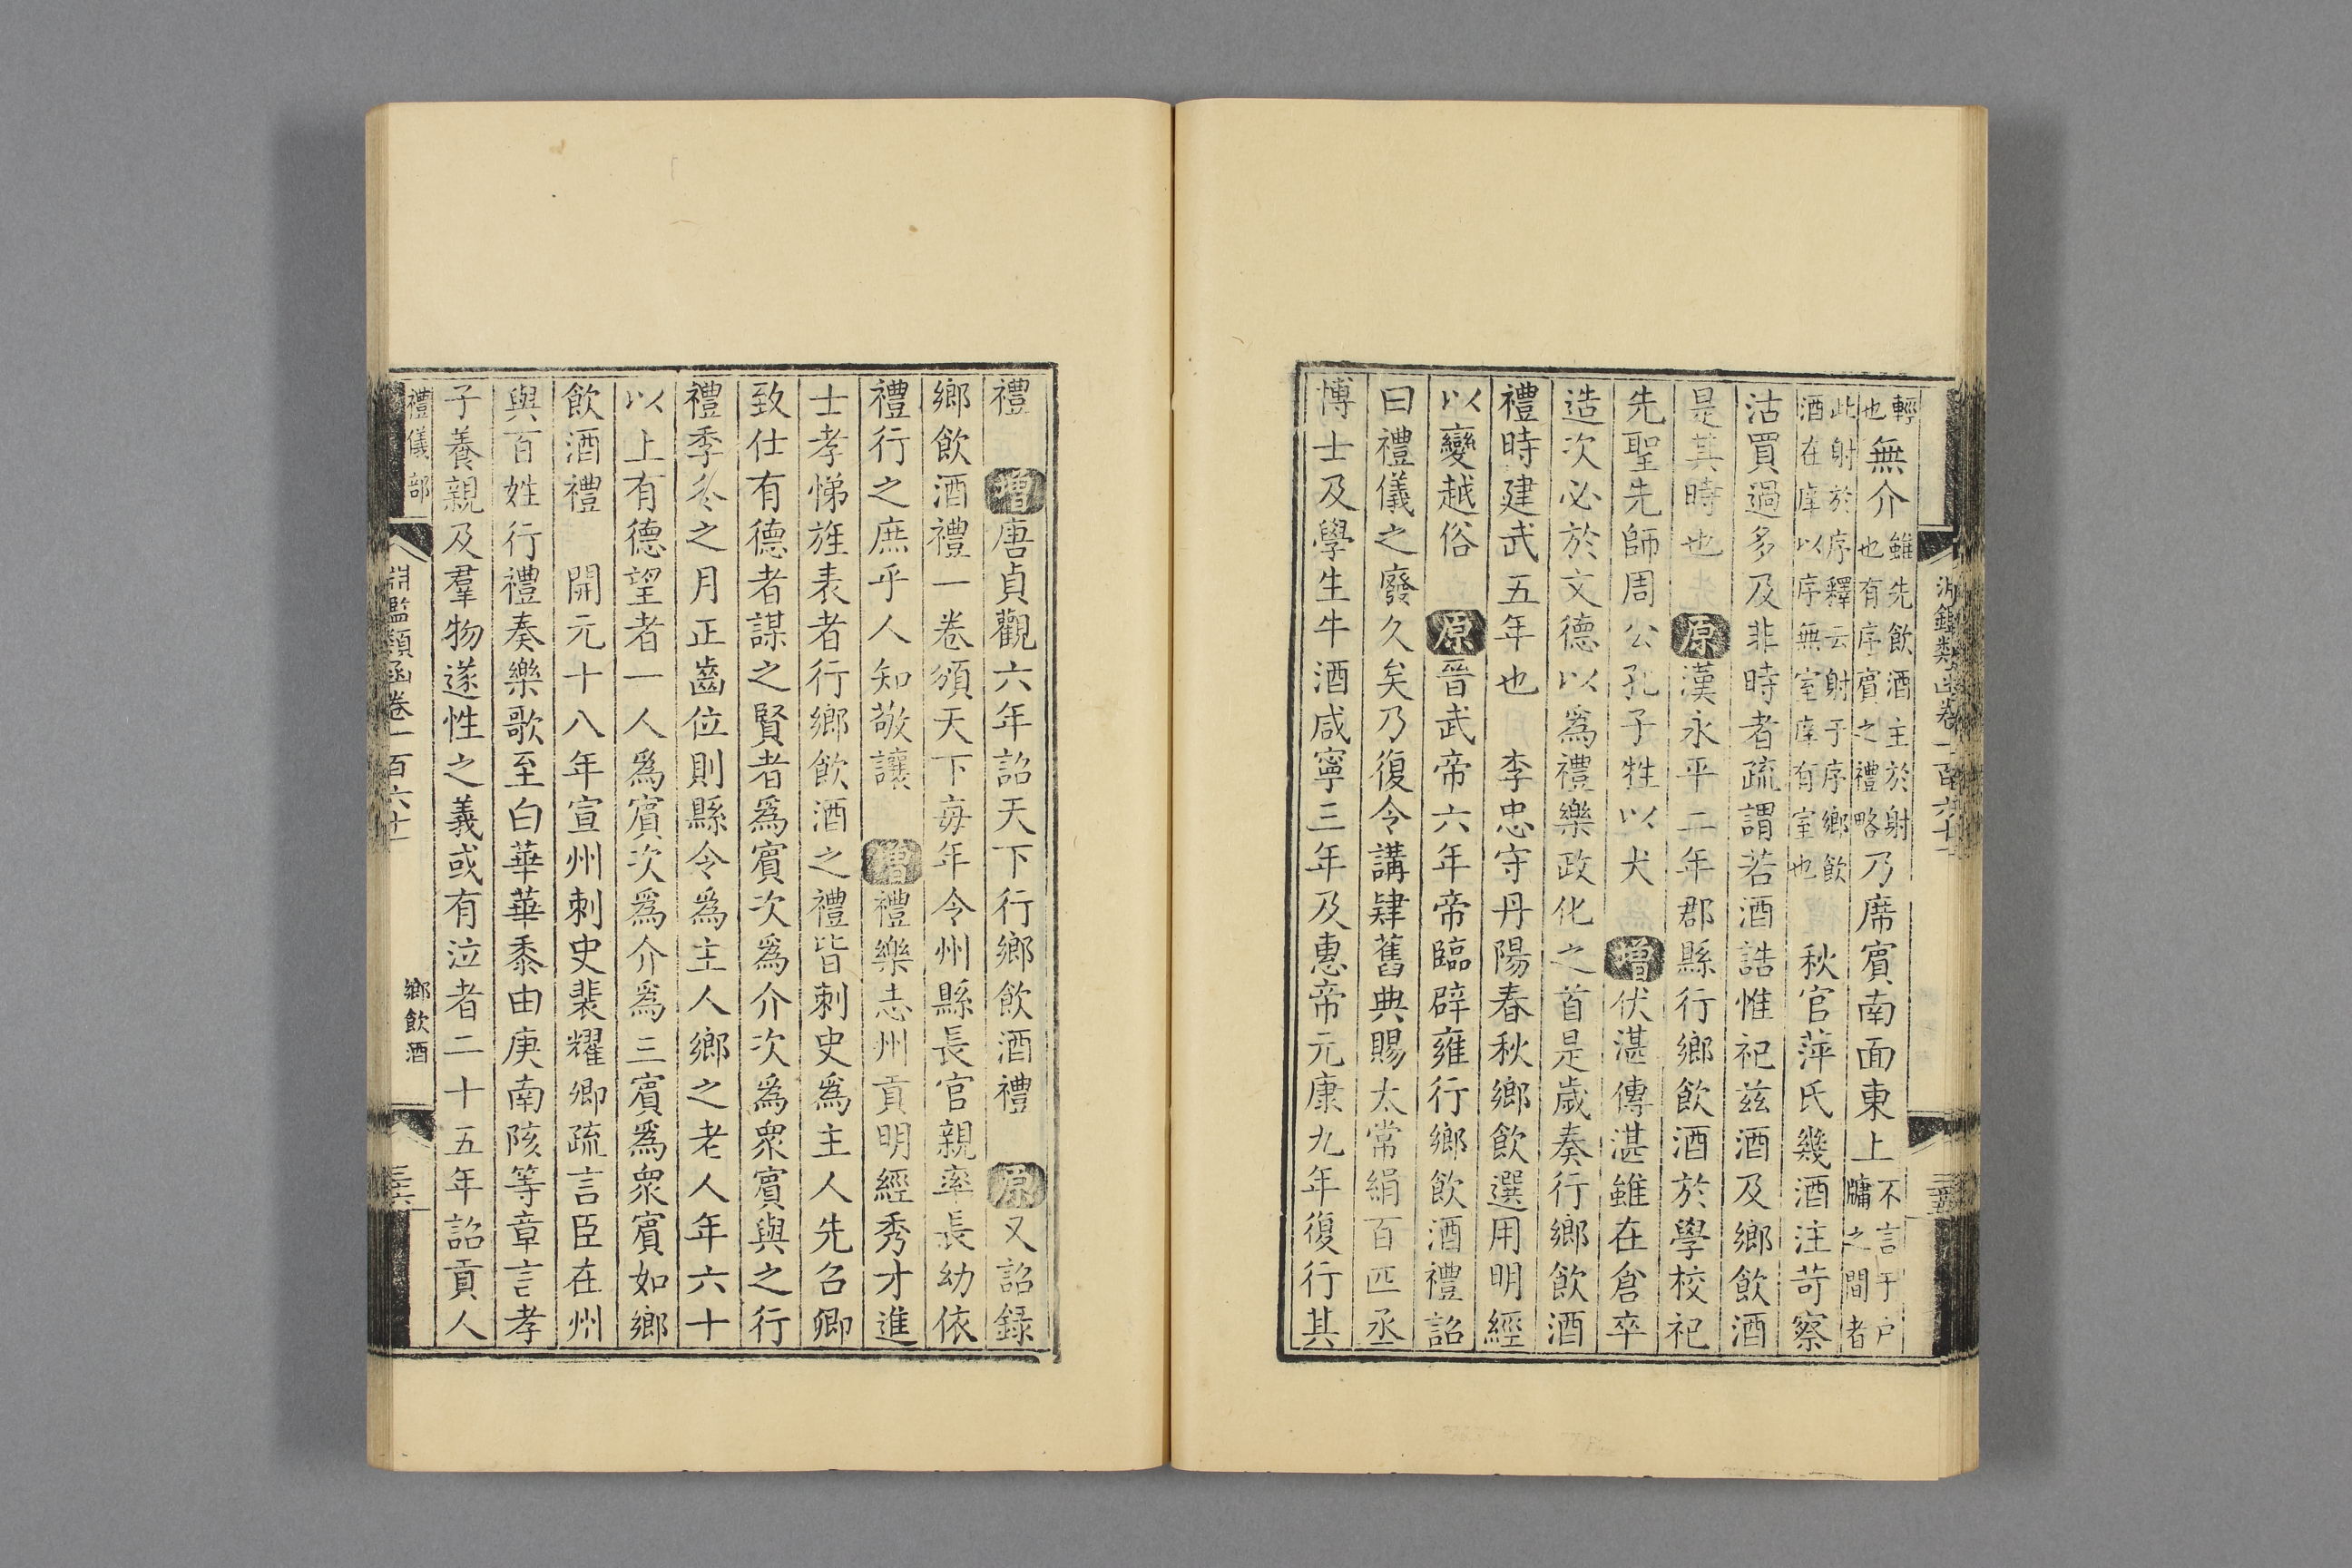 淵鑑類函卷一百六十一
輕也無介雖先飲酒主於射也有序賓之禮略乃席賓南面東上不言于户牖之間者
此射於序釋云射于序鄉飲酒在庠以序無室庠有室也　秋官萍氏幾酒注苛察
沽買過多及非時者疏謂若酒誥惟祀兹酒及鄉飲酒
是其時也　原漢永平二年郡縣行鄉飲酒於學校祀
先聖先師周公孔子牲以犬　增伏湛傳湛雖在倉卒
造次必於文德以爲禮樂政化之首是歲奏行鄉飲酒
禮時建武五年也　李忠守丹陽春秋鄉飲選用明經
以變越俗　原晉武帝六年帝臨辟雍行鄉飲酒禮詔
曰禮儀之廢久矣乃復令講肄舊典賜太常絹百匹丞
博士及學生牛酒咸寧三年及惠帝元康九年復行其
禮　增唐貞觀六年詔天下行鄉飲酒禮　原又詔錄
鄉飲酒禮一卷頒天下毎年令州縣長官親率長幼依
禮行之庶乎人知敬讓　增禮樂志州貢明經秀才進
士孝悌旌表者行鄉飲酒之禮皆刺史爲主人先召卿
致仕有德者謀之賢者爲賓次爲介次爲衆賓與之行
禮季冬之月正齒位則縣令爲主人鄉之老人年六十
以上有德望者一人爲賓次爲介爲三賓爲衆賓如鄉
飲酒禮　開元十八年宣州刺史裴耀卿疏言臣在州
與百姓行禮奏樂歌至白華華黍由庚南陔等章言孝
子養親及羣物遂性之義或有泣者二十五年詔貢人
禮儀部　淵鑑類函卷一百六十一　鄉飲酒　三六